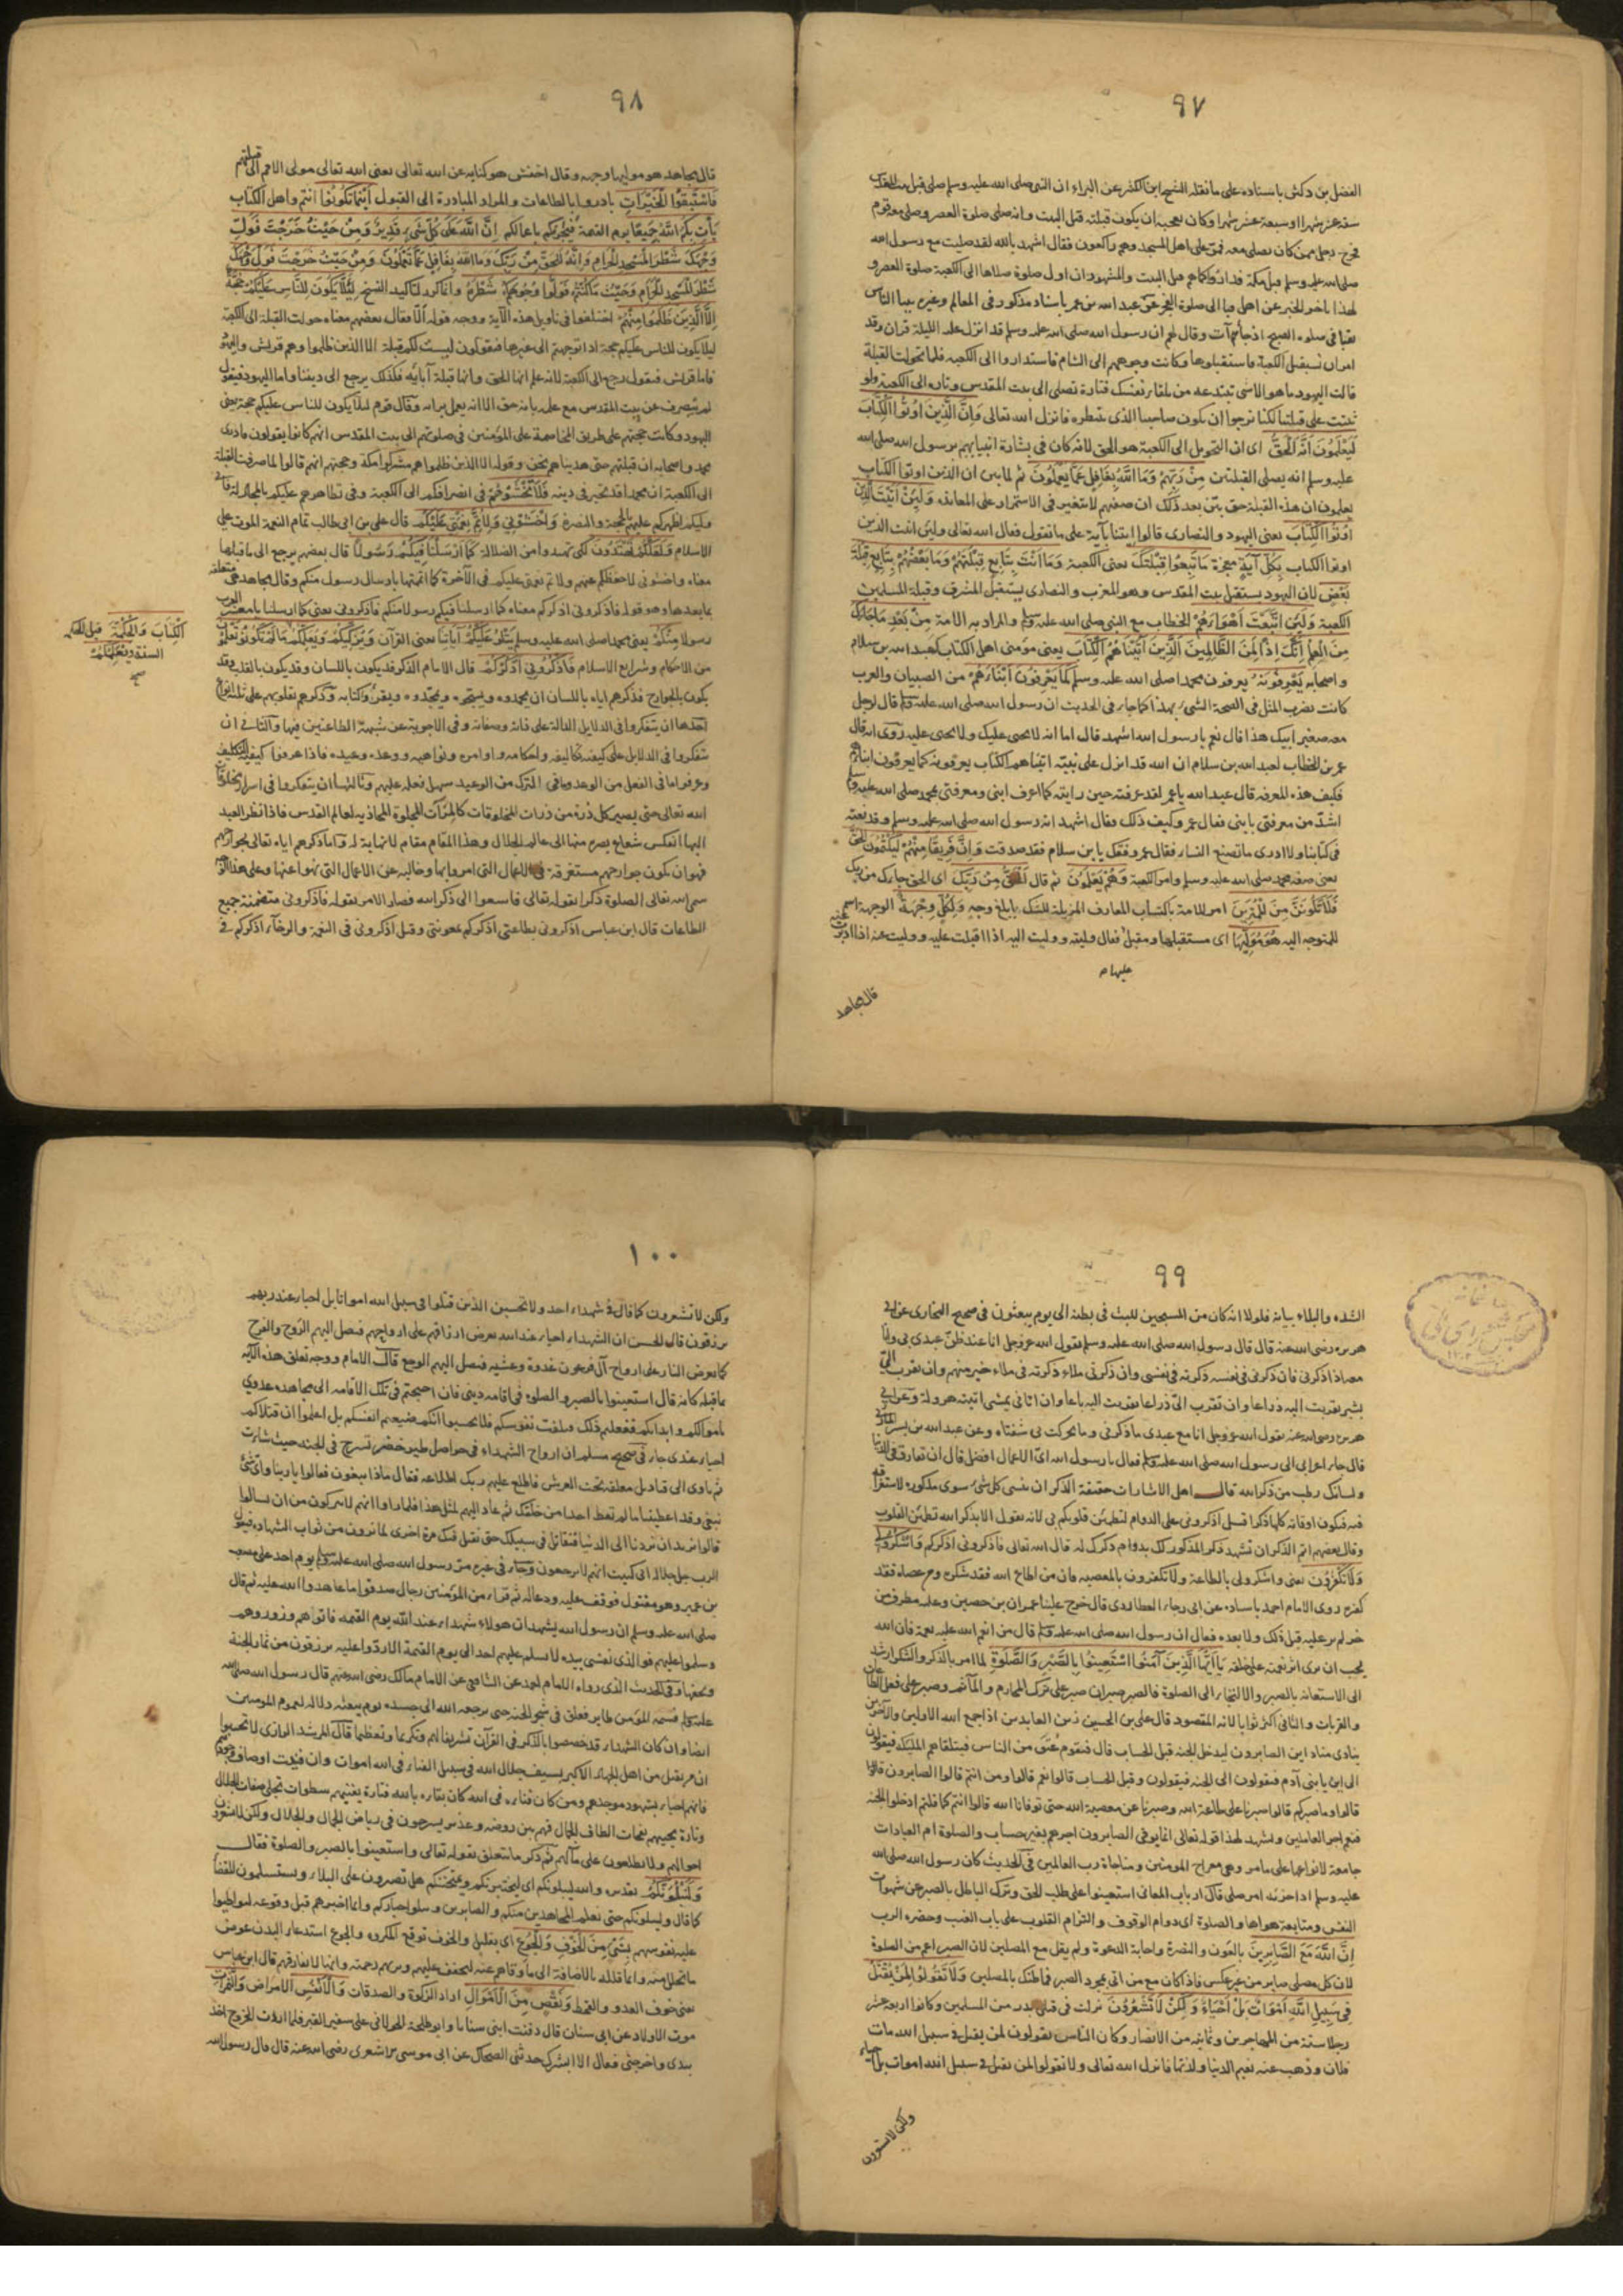 ٩٧
الفضل بن دكين باسناده على ما نقله الشيخ ابن الكثير عن البراء ان النبي صلى الله عليه وسلم صلى قبل بيت المقدس
ستة عشر شهرا او سبعة عشر شهرا وكان يعجبه ان يكون قبلته قبل البيت وانه صلى صلوة العصر وصلى معه قوم
فخرج رجل ممن كان يصلي معه فمر على اهل المسجد وهم راكعون فقال اشهد بالله لقد صليت مع رسول الله
صلى الله عليه وسلم قبل مكة فداروا كما هم قبل البيت والمشهور ان اول صلوة صلاها الى الكعبة صلوة العصر و
لهذا تاخر الخبر عن اهل قبا الى صلوة الفجر عن عبد الله بن عمر باسناد مذكور في المعالم وغيره بينا الناس
بقبا في صلوة الصبح اذ جاءهم آت وقال لهم ان رسول الله صلى الله عليه وسلم قد انزل عليه الليلة قران وقد
امر ان نستقبل الكعبة فاستقبلوها وكانت وجوههم الى الشام فاستداروا الى الكعبة فلما تحولت القبلة
قالت اليهود ما هو الا شئ تبتدعه من تلقاء نفسك فتارة تصلي الى بيت المقدس وتارة الى الكعبة ولو
ثبتت على قبلتنا لكنا نرجوا ان يكون صاحبنا الذي ننتظره فانزل الله تعالى وَاِنَّ الَّذِينَ اُوتُوا الْكِتَابَ
لَيَعْلَمُونَ اَنَّهُ الْحَقُّ اى ان التحويل الى الكعبة هو الحق لانه كان في بشارة انبيائهم برسول الله صلى الله
عليه وسلم انه يصلي القبلتين مِنْ رَبِّهِمْ وَمَا اللَّهُ بِغَافِلٍ عَمَّا يَعْمَلُونَ ثم لما بين ان الذين اوتوا الكتاب
يعلمون ان هذه القبلة حق بين بعد ذلك ان صفتهم لا تتغير في الاستمرار على المعاندة وَلَئِنْ اَتَيْتَ الَّذِينَ
اُوتُوا الْكِتَابَ يعنى اليهود والنصارى قالوا ايتنا بآية على ما تقول فقال الله تعالى ولئن اتيت الذين
اوتوا الكتاب بِكُلِّ آيَةٍ معجزة مَا تَبِعُوا قِبْلَتَكَ يعنى الكعبة وَمَا اَنْتَ بِتَابِعٍ قِبْلَتَهُمْ وَمَا بَعْضُهُمْ بِتَابِعٍ قِبْلَةَ
بَعْضٍ لان اليهود يستقبل بيت المقدس وهو المغرب والنصارى يستقبل المشرق وقبلة المسلمين
الكعبة وَلَئِنِ اتَّبَعْتَ اَهْوَاءَهُمْ الخطاب مع النبي صلى الله عليه وسلم والمراد به الامة مِنْ بَعْدِ مَا جَاءَكَ
مِنَ الْعِلْمِ اِنَّكَ اِذًا لَمِنَ الظَّالِمِينَ الَّذِينَ آتَيْنَاهُمُ الْكِتَابَ يعنى مؤمنى اهل الكتاب كعبد الله بن سلام
واصحابه يَعْرِفُونَهُ يعرفون محمدا صلى الله عليه وسلم كَمَا يَعْرِفُونَ اَبْنَاءَهُمْ من الصبيان والعرب
كانت تضرب المثل في الصحة الشئ بهذا كما جاء في الحديث ان رسول الله صلى الله عليه وسلم قال لرجل
معه صغير ابنك هذا قال نعم يا رسول الله اشهد قال اما انه لا يجنى عليك ولا تجنى عليه روى انه قال
عمر بن الخطاب لعبد الله بن سلام ان الله قد انزل على نبيه اتيناهم الكتاب يعرفونه كما يعرفون ابناءهم
فكيف هذه المعرفة قال عبد الله يا عمر لقد عرفته حين رايته كما اعرف ابنى ومعرفتى بمحمد صلى الله عليه وسلم
اشد من معرفتى بابنى فقال عمر وكيف ذلك فقال اشهد انه رسول الله صلى الله عليه وسلم وقد نعته
في كتابنا ولا ادرى ما تصنع النساء فقال عمر وفقك الله يا ابن سلام فقد صدقت وَاِنَّ فَرِيقًا مِنْهُمْ لَيَكْتُمُونَ الْحَقَّ
يعنى صفة محمد صلى الله عليه وسلم وامر الكعبة وَهُمْ يَعْلَمُونَ ثم قال اَلْحَقُّ مِنْ رَبِّكَ اى الحق جاءك من ربك
فَلَا تَكُونَنَّ مِنَ الْمُمْتَرِينَ امر للامة باكتساب المعارف المزيلة للشك بابلغ وجه وَلِكُلٍّ وِجْهَةٌ الوجهة اسم
للمتوجه اليه هُوَ مُوَلِّيهَا اى مستقبلها ومقبل فقال وليته ووليت اليه اذا اقبلت عليه ووليت عنه اذا ادبرت عنه
عليها م
قال مجاهد
٩٨
قال مجاهد هو موليها وجهه وقال اخفش هو كناية عن الله تعالى يعنى الله تعالى مولى الامم الى قبلتهم
فَاسْتَبِقُوا الْخَيْرَاتِ بادروا بالطاعات والمراد المبادرة الى القبول اَيْنَمَا تَكُونُوا انتم واهل الكتاب
يَأْتِ بِكُمُ اللَّهُ جَمِيعًا يوم القيمة فيجزيكم باعمالكم اِنَّ اللَّهَ عَلَى كُلِّ شَيْءٍ قَدِيرٌ وَمِنْ حَيْثُ خَرَجْتَ فَوَلِّ
وَجْهَكَ شَطْرَ الْمَسْجِدِ الْحَرَامِ وَاِنَّهُ لَلْحَقُّ مِنْ رَبِّكَ وَمَا اللَّهُ بِغَافِلٍ عَمَّا تَعْمَلُونَ وَمِنْ حَيْثُ خَرَجْتَ فَوَلِّ وَجْهَكَ
شَطْرَ الْمَسْجِدِ الْحَرَامِ وَحَيْثُ مَا كُنْتُمْ فَوَلُّوا وُجُوهَكُمْ شَطْرَهُ وانما كرر لتاكيد النسخ لِئَلَّا يَكُونَ لِلنَّاسِ عَلَيْكُمْ حُجَّةٌ
اِلَّا الَّذِينَ ظَلَمُوا مِنْهُمْ اختلفوا في تاويل هذه الآية ووجه قوله الا فقال بعضهم معناه حولت القبلة الى الكعبة
ليلا يكون للناس عليكم حجة اذا توجهتم الى غيرها فيقولون ليست لكم قبلة الا الذين ظلموا وهم قريش واليهود
فاما قريش فيقول رجع الى الكعبة لانه علم انها الحق وانها قبلة آبائه فكذلك يرجع الى ديننا واما اليهود فيقول
لم ينصرف عن بيت المقدس مع علمه بانه حق الا انه يعمل برايه وقال قوم لئلا يكون للناس عليكم حجة يعنى
اليهود وكانت حجتهم على طريق المخاصمة على المؤمنين في صلوتهم الى بيت المقدس انهم كانوا يقولون ما درى
محمد واصحابه ان قبلتهم حتى هديناهم نحن وقوله الا الذين ظلموا هم مشركوا مكة وحجتهم انهم قالوا لما صرفت القبلة
الى الكعبة ان محمدا قد تحير في دينه فَلَا تَخْشَوْهُمْ في انصرافكم الى الكعبة وفي تظاهرهم عليكم بالمجادلة فانى
وليكم اظهركم عليهم بالحجة والنصرة وَاخْشَوْنِي وَلِاُتِمَّ نِعْمَتِي عَلَيْكُمْ قال على بن ابى طالب تمام النعمة الموت على
الاسلام وَلَعَلَّكُمْ تَهْتَدُونَ لكى تهتدوا من الضلالة كَمَا اَرْسَلْنَا فِيكُمْ رَسُولًا قال بعضهم يرجع الى ما قبلها
معناه واخشونى لاحفظكم عنهم ولاتم نعمتى عليكم في الآخرة كما اتممتها بارسال رسول منكم وقال مجاهد هي متعلقة
بما بعدها وهو قوله فاذكرونى اذكركم معناه كما ارسلنا فيكم رسولا منكم فاذكرونى يعنى كما ارسلنا يا معشر العرب
رسولا مِنْكُمْ يعنى محمدا صلى الله عليه وسلم يَتْلُو عَلَيْكُمْ آيَاتِنَا يعنى القرآن وَيُزَكِّيكُمْ وَيُعَلِّمُكُمْ مَا لَمْ تَكُونُوا تَعْلَمُونَ
الْكِتَابَ وَالْحِكْمَةَ قيل الحكمة
السنة وَيُعَلِّمُكُمْ
صح
من الاحكام وشرايع الاسلام فَاذْكُرُونِي اَذْكُرْكُمْ قال الامام الذكر قد يكون باللسان وقد يكون بالقلب وقد
يكون بالجوارح فذكرهم اياه باللسان ان يحمدوه ويسبحوه ويمجدوه ويقرؤ كتابه وذكرهم بقلوبهم على ثلثة انواع
احدها ان يتفكروا في الدلايل الدالة على ذاته وصفاته وفي الاجوبة عن شبهة الطاعنين فيها والثانى ان
يتفكروا في الدلايل على كيفية تكاليفه واحكامه واوامره ونواهيه ووعده ووعيده فاذا عرفوا كيفية التكليف
وعرفوا ما في الفعل من الوعد وما في الترك من الوعيد سهل فعله عليهم وثالثها ان يتفكروا في اسرار مخلوقات
الله تعالى حتى يصير كل ذرة من ذرات المخلوقات كالمرآت المجلوة المحاذية لعالم القدس فاذا نظر العبد
اليها انعكس شعاع بصره منها الى عالم الجلال وهذا المقام مقام لا نهاية له واما ذكرهم اياه تعالى بجوارحهم
فهو ان يكون جوارحهم مستغرقة في الاعمال التى امروا بها وخالية عن الاعمال التى نهوا عنها وعلى هذا الوجه
سمى الله تعالى الصلوة ذكرا بقوله تعالى فاسعوا الى ذكر الله فصار الامر بقوله فاذكرونى متضمنة جميع
الطاعات قال ابن عباس اذكرونى بطاعتى اذكركم بمعونتى وقيل اذكرونى في النعمة والرخاء اذكركم في
٩٩
الشدة والبلاء بيانه فلولا انه كان من المسبحين للبث في بطنه الى يوم يبعثون في صحيح البخارى عن ابى
هريرة رضى الله عنه قال قال رسول الله صلى الله عليه وسلم يقول الله عز وجل انا عند ظن عبدى بى وانا
معه اذا ذكرنى فان ذكرنى في نفسه ذكرته في نفسى وان ذكرنى في ملاء ذكرته في ملاء خير منهم وان تقرب الى
بشبر تقربت اليه ذراعا وان تقرب الى ذراعا تقربت اليه باعا وان اتانى يمشى اتيته هرولة وعن ابى
هريرة رضى الله عنه يقول الله عز وجل انا مع عبدى ما ذكرنى وما تحركت بى شفتاه وعن عبد الله بن بسر المازنى
قال جاء اعرابى الى رسول الله صلى الله عليه وسلم فقال يا رسول الله اى الاعمال افضل قال ان تفارق الدنيا
ولسانك رطب من ذكر الله قال اهل الاشارات حقيقة الذكر ان ينسى كل شئ سوى مذكوره لاستغراقه
فيه فيكون اوقاته كلها ذكرا قيل اذكرونى على الدوام لتطمئن قلوبكم بى لانه يقول الا بذكر الله تطمئن القلوب
وقال بعضهم اتم الذكر ان تشهد ذكر المذكور لك بدوام ذكرك له قال الله تعالى فاذكرونى اذكركم وَاشْكُرُوا لِي
وَلَا تَكْفُرُونِ يعنى واشكروا لى بالطاعة ولا تكفرون بالمعصية فان من اطاع الله فقد شكره ومن عصاه فقد
كفره روى الامام احمد باسناده عن ابى رجاء العطاردى قال خرج علينا عمران بن حصين وعليه مطرف من
خز لم نره عليه قبل ذلك ولا بعده فقال ان رسول الله صلى الله عليه وسلم قال من انعم الله عليه نعمة فان الله
يحب ان يرى اثر نعمته على خلقه يَا اَيُّهَا الَّذِينَ آمَنُوا اسْتَعِينُوا بِالصَّبْرِ وَالصَّلَوةِ لما امر بالذكر والشكر ارشد
الى الاستعانة بالصبر والالتجاء الى الصلوة فالصبر صبران صبر على ترك المحارم والمآثم وصبر على فعل الطاعات
والقربات والثانى اكثر ثوابا لانه المقصود قال على بن الحسين زين العابدين اذا جمع الله الاولين والآخرين
ينادى مناد اين الصابرون ليدخلوا الجنة قبل الحساب قال فيقوم عنق من الناس فيتلقاهم الملئكة فيقولون
الى اين يا بنى آدم فيقولون الى الجنة فيقولون وقبل الحساب قالوا نعم قالوا ومن انتم قالوا الصابرون قالوا
قالوا وما صبركم قالوا صبرنا على طاعة الله وصبرنا عن معصية الله حتى توفانا الله قالوا انتم كما قلتم ادخلوا الجنة
فنعم اجر العاملين ويشهد لهذا قوله تعالى انما يوفى الصابرون اجرهم بغير حساب والصلوة ام العبادات
جامعة لانواعها على ما مر وهى معراج المومنين ومناجاة رب العالمين في الحديث كان رسول الله صلى الله
عليه وسلم اذا حزبه امر صلى قال ارباب المعانى استعينوا على طلب الحق وترك الباطل بالصبر عن شهوات
النفس ومتابعة هواها والصلوة اى دوام الوقوف والتزام القلوب على باب الغيب وحضرة الرب
اِنَّ اللَّهَ مَعَ الصَّابِرِينَ بالعون والنصرة واجابة الدعوة ولم يقل مع المصلين لان الصبر اعم من الصلوة
لان كل مصلى صابر من غير عكس فاذا كان مع من اتى بمجرد الصبر فما ظنك بالمصلين وَلَا تَقُولُوا لِمَنْ يُقْتَلُ
فِي سَبِيلِ اللَّهِ اَمْوَاتٌ بَلْ اَحْيَاءٌ وَلَكِنْ لَا تَشْعُرُونَ نزلت في قتلى بدر من المسلمين وكانوا اربعة عشر
رجلا ستة من المهاجرين وثمانية من الانصار وكان الناس يقولون لمن يقتل في سبيل الله مات
فلان وذهب عنه نعيم الدنيا ولذتها فانزل الله تعالى ولا تقولوا لمن يقتل في سبيل الله اموات بل احياء
ولكن لا تشعرون
١٠٠
ولكن لا تشعرون كما قال في شهداء احد ولا تحسبن الذين قتلوا في سبيل الله امواتا بل احياء عند ربهم
يرزقون قال الحسن ان الشهداء احياء عند الله يعرض ارزاقهم على ارواحهم فيصل اليهم الروح والفرح
كما يعرض النار على ارواح آل فرعون غدوة وعشية فيصل اليهم الوجع قال الامام ووجه تعلق هذه الآية
بما قبله كانه قال استعينوا بالصبر والصلوة في اقامة دينى فان احتجتم في تلك الاقامة الى مجاهدة عدوى
باموالكم وابدانكم ففعلتم ذلك وتلفت نفوسكم فلا تحسبوا انكم ضيعتم انفسكم بل اعلموا ان قتلاكم
احياء عندى جاء في صحيح مسلم ان ارواح الشهداء في حواصل طيور خضر تسرح في الجنة حيث شاءت
ثم تاوى الى قناديل معلقة تحت العرش فاطلع عليهم ربك اطلاعة فقال ماذا تبغون فقالوا يا ربنا واى شئ
نبغى وقد اعطيتنا ما لم تعط احدا من خلقك ثم عاد اليهم بمثل هذا فلما راوا انهم لا يتركون من ان يسالوا
قالوا نريد ان تردنا الى الدنيا فنقاتل في سبيلك حتى نقتل فيك مرة اخرى لما نرون من ثواب الشهادة فيقول
الرب جل جلاله انى كتبت انهم لا يرجعون وجاء في خبر مر رسول الله صلى الله عليه وسلم يوم احد على مصعب
بن عمير وهو مقتول فوقف عليه ودعا له ثم قراء من المؤمنين رجال صدقوا ما عاهدوا الله عليه ثم قال
صلى الله عليه وسلم ان رسول الله يشهد ان هولاء شهداء عند الله يوم القيمة فاتوا هم وزوروهم
وسلموا عليهم فوالذى نفسى بيده لا يسلم عليهم احد الى يوم القيمة الا ردوا عليه يرزقون من ثمار الجنة
وتحفها وفي الحديث الذى رواه الامام احمد عن الشافعى عن الامام مالك رضى الله عنهم قال رسول الله صلى الله
عليه وسلم نسمة المؤمن طاير تعلق في شجر الجنة حتى يرجعه الله الى جسده يوم يبعثه دلالة لعموم المومنين
ايضا وان كان الشهداء قد خصصوا بالذكر في القرآن تشريفا لهم وتكريما وتعظيما
ان من يقتل من اهل الجهاد الاكبر بسيف جلال الله في سبيل الفناء في الله اموات وان فنيت اوصاف وجودهم
فانهم احياء بشهود موجدهم ومن كان فناءه في الله كان بقاءه بالله فتارة يفنيهم سطوات تجلى صفات الجلال
وتارة يحييهم نفحات الطاف الجمال فهم بين روضة وغدير يسرحون في رياض الجمال والجلال ولكن لا تشعرون
احوالهم ولا تطلعون على مآلهم ثم ذكر ما يتعلق بقوله تعالى واستعينوا بالصبر والصلوة فقال
وَلَنَبْلُوَنَّكُمْ تقديره والله ليبلونكم اى ليختبرنكم ويمتحننكم هل تصبرون على البلاء وتستسلمون للقضا
كما قال ولنبلونكم حتى نعلم المجاهدين منكم والصابرين ونبلوا اخباركم وانما اخبرهم قبل وقوعه ليوطنوا
عليه نفوسهم بِشَيْءٍ مِنَ الْخَوْفِ وَالْجُوعِ اى بقليل والخوف توقع المكروه والجوع استدعاء البدن عوض
ما تحلل منه وانما قلله بالاضافة الى ما وقاهم عنه ليخفف عليهم ويريهم رحمته وانها لا تفارقهم قال ابن عباس
يعنى خوف العدو والقحط وَنَقْصٍ مِنَ الْاَمْوَالِ اداء الزكوة والصدقات وَالْاَنْفُسِ الامراض وَالثَّمَرَاتِ
موت الاولاد عن ابى سنان قال دفنت ابنى سنانا وابو طلحة الخولانى على شفير القبر فلما اردت الخروج اخذ
بيدى واخرجنى فقال الا ابشرك حدثنى الضحاك عن ابى موسى الاشعرى رضى الله عنه قال قال رسول الله